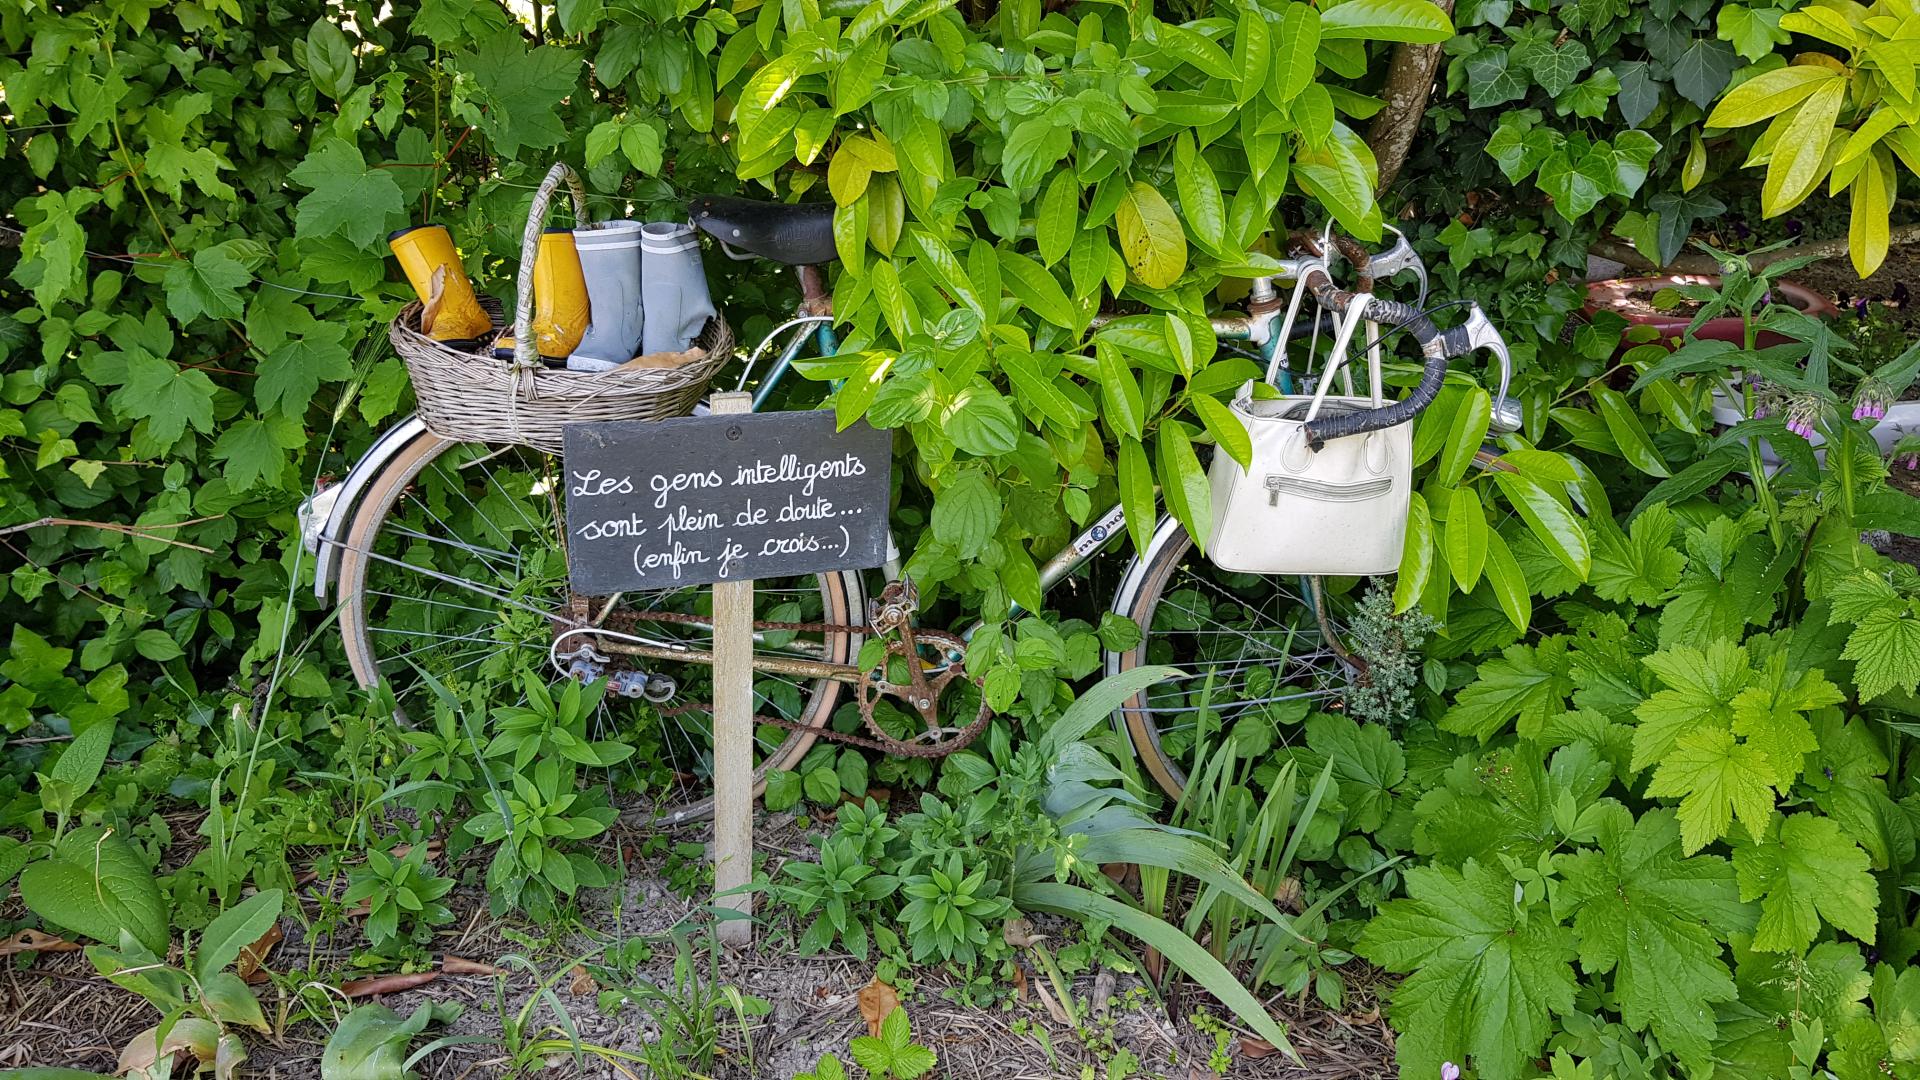 Les gens intelligents
sont plein de doute...
(enfin je crois...)